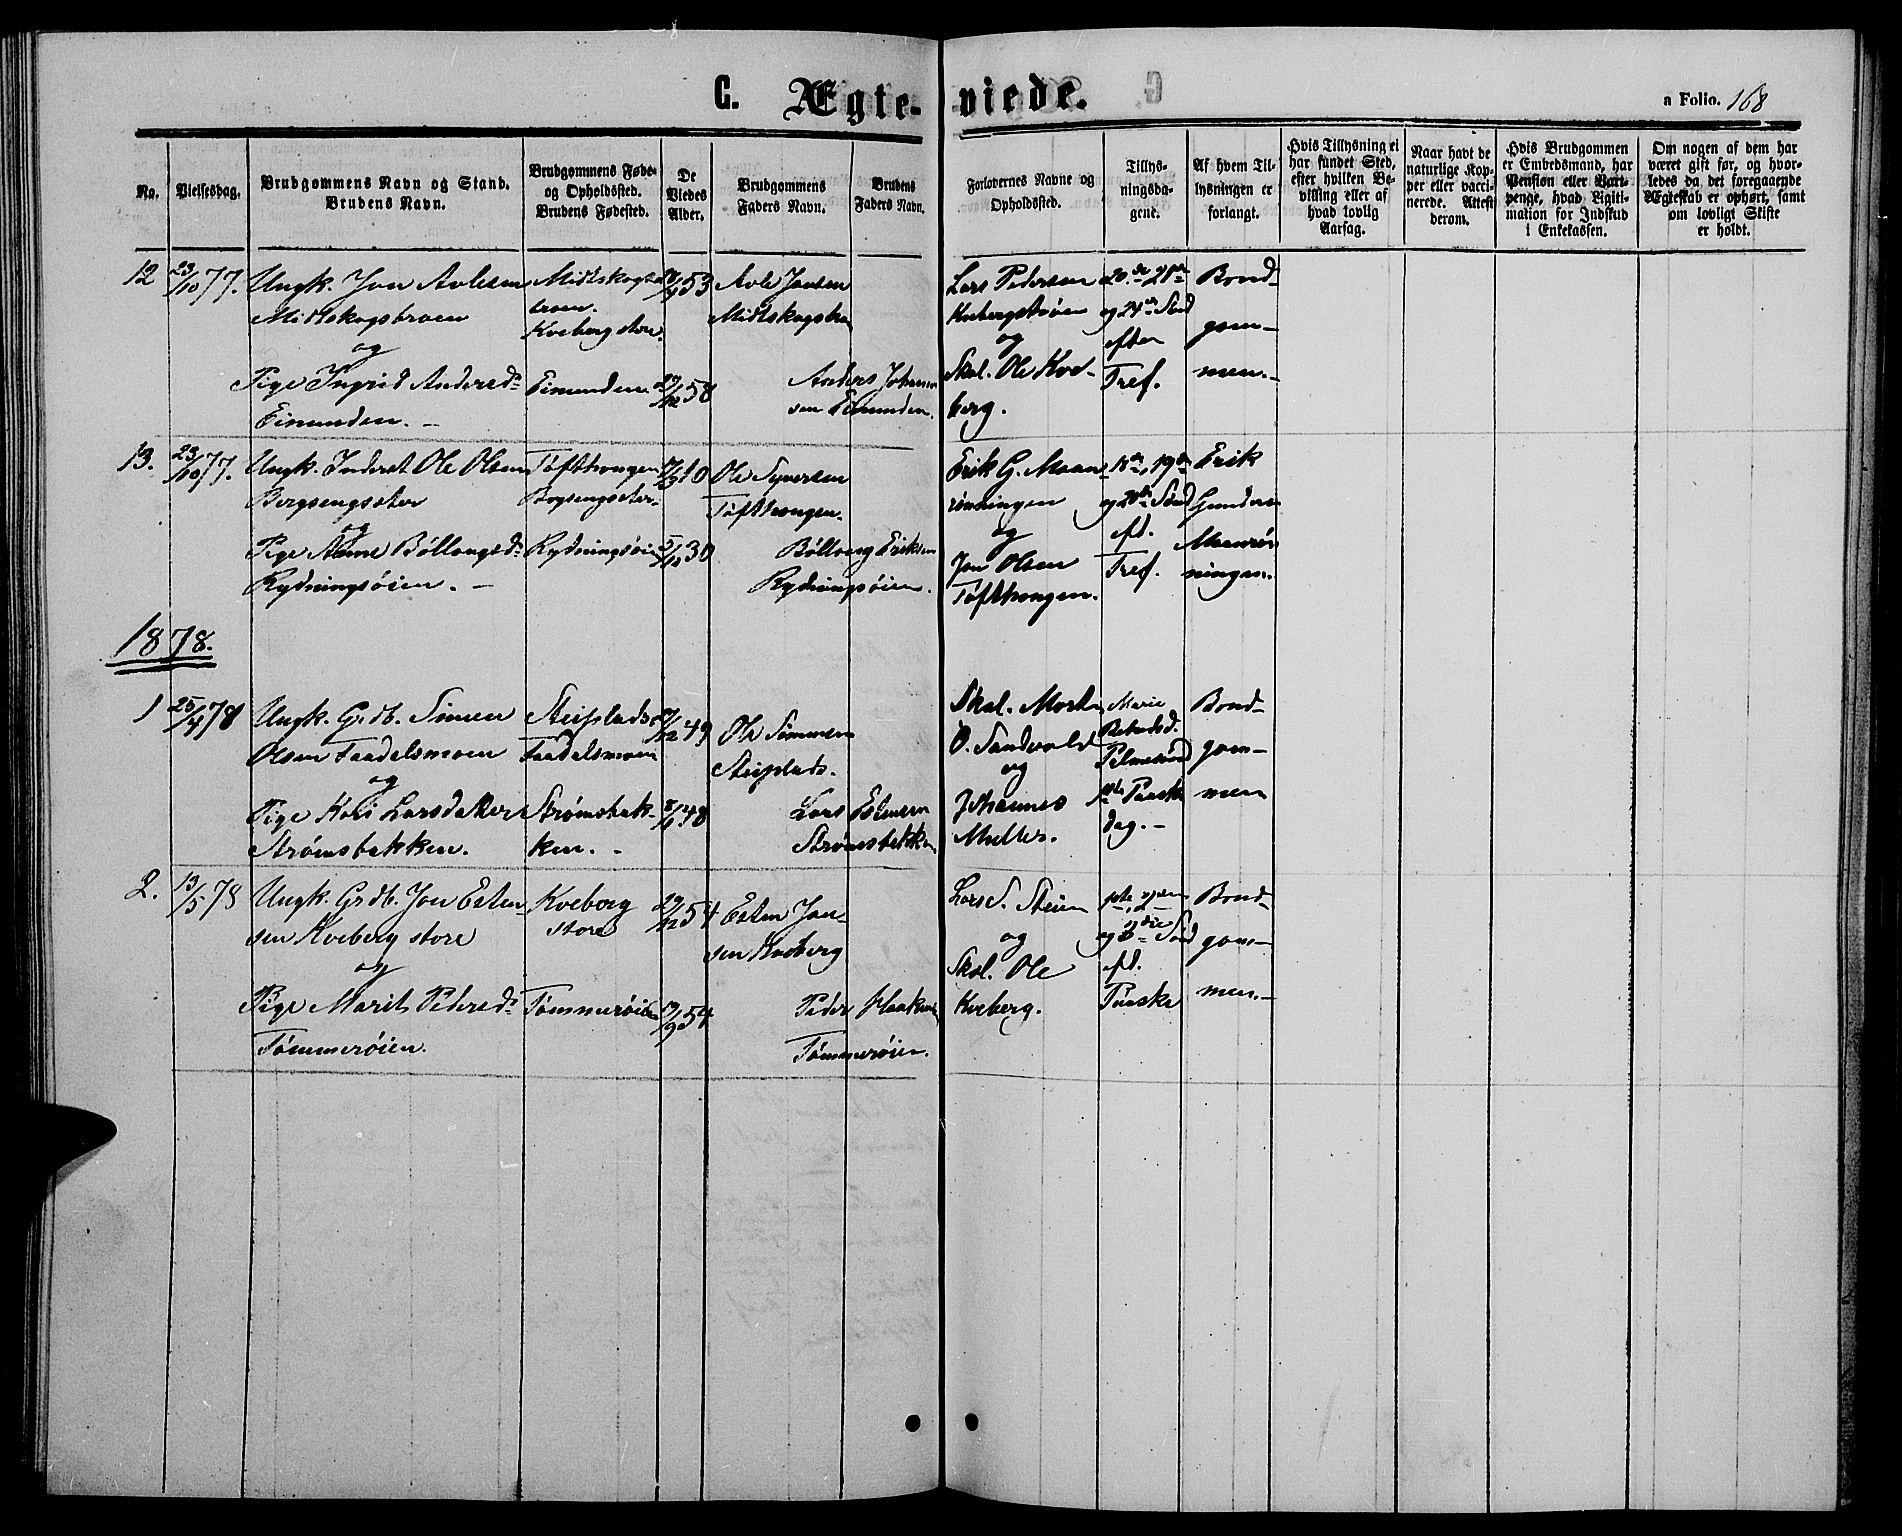 C. Ægte- viede.
a Folio. 168
No.
Vielsesdag.
Brudgommens Navn og Stand.
Brudens Navn.
Brudgommens Føde-
og Opholdssted.
Brudens Fødested.
De
Viedes
Alder.
Brudgommens
Faders Navn.
Brudens
Faders Navn.
Forlovernes Navne og
Opholdssted.
Tillys-
ningsda-
gene.
Af hvem Til-
lysningen er
forlangt.
Hvis Tillysning ei
har fundet Sted,
efter hvilken Be-
villing eller af
hvad lovlig
Aarsag.
Naar havt de
naturlige Kop-
per eller vacci-
nerede. Attest
derom.
Hvis Brudgommen
er Embedsmand, har
Pension eller Vart-
penge, hvad Ligiti-
mation for Indskud
i Enkekassen.
Om nogen af dem har
været gift før, og hvor-
ledes da det foregaaende
Ægteskab er ophørt, samt
om lovligt Skifte
er holdt.
12 23/10 77.
Ungk. Jon Avlesen
Midtskogsbroen
og
Pige Ingrid Andersd.
Eimunden. –
Midtskogs-
broen.
Kveberg store.
Eimunden
53
27/12 58
Avle Jonsen
Midtskogsbr
Anders Johan-
sen Eimunden.
Lars Pedersen
Kvebergsbrøen
og
Skol. Ole Kve-
berg.
20de 21de
og 24de Sønd
efter
Tref.
Brud-
gom-
men.–
13. 23/10 77.
Ungk. Inderst Ole Olsen
Bergsengseter
og
Pige Anne Böllougsd.
Rydningsøien. –
Tøfthongen
Bergsengseter
Rydningsøien
40
5/10 30
Ole Syversen
Tøfthongen.
Bölloug Eriksen
Rydningsøien.
Erik G. Moen
rønningen
og
Jon Olsen
Tøfthongen.
18de, 19de
og 20de Sønd
eft.
Tref.
Erik
Gunders
Moenrøn
ningen.
1878.
1 25/4 78
Ungk. Grdb. Simen
Olsen Faadalsmoen
og
Pige Kari Larsdatter
Strømsbakken.
Steiplads
Faadalsmoen
Strømsbak-
ken. -
49
48
Ole Simmen
Steiplads.
Lars Estensen
Strømsbakken
Skol. Morten
O. Sandvold
og
Johannes
Møller.
Marie
Bebudsd.
Palmesønd
1ste Paaske
dag.–
Brud-
gom-
men
2. 13/5 78
Ungk. Grdb. Jon Esten
sen Kveberg store
og
Pige Marit Pedersd.
Tømmerøien.
Kveberg
store
Tømmerøien
29/12 54
54
Esten Jon-
sen Kveberg
Peder Haaken
Tømmerøien.
Lars S. Steien
og
Skol. Ole
Kveberg.
1ste, 2den
og 3die Sønd
eft.
Paaske
Brud-
gom-
men.–